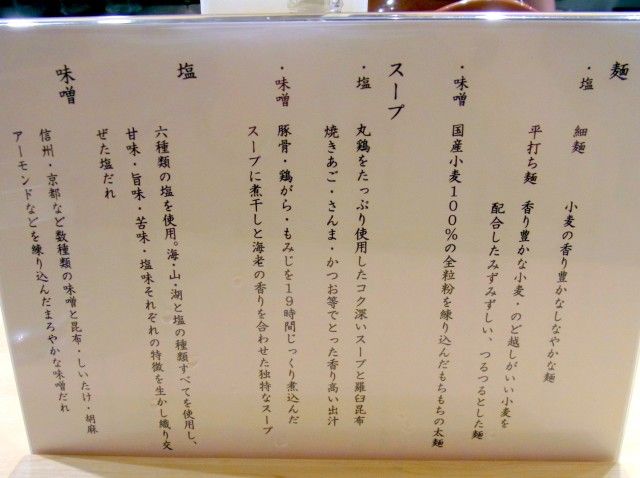 麺
・塩 細麺 小麦の香り豊かなしなやかな麺
平打ち麺 香り豊かな小麦・のど越しがいい小麦を
配合したみずみずしい、つるつるとした麺
・味噌 国産小麦100%の全粒粉を練り込んだもちもちの太麺
スープ
・塩 丸鶏をたっぷり使用したコク深いスープと羅臼昆布
焼きあご・さんま・かつお等でとった香り高い出汁
・味噌 豚骨・鶏がら・もみじを19時間じっくり煮込んだ
スープに煮干しと海老の香りを合わせた独特なスープ
塩
六種類の塩を使用。海・山・湖と塩の種類すべてを使用し、
甘味・旨味・苦味・塩味それぞれの特徴を生かし織り交
ぜた塩だれ
味噌
信州・京都など数種類の味噌と昆布・しいたけ・胡麻
アーモンドなどを練り込んだまろやかな味噌だれ